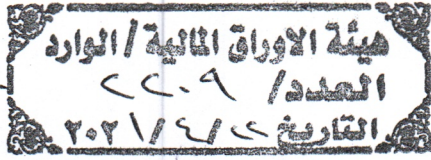 هيئة الاوراق المالية / الوارد
العدد / ٢٢٠٩
التاريخ ٢ / ٤ / ٢٠٢١